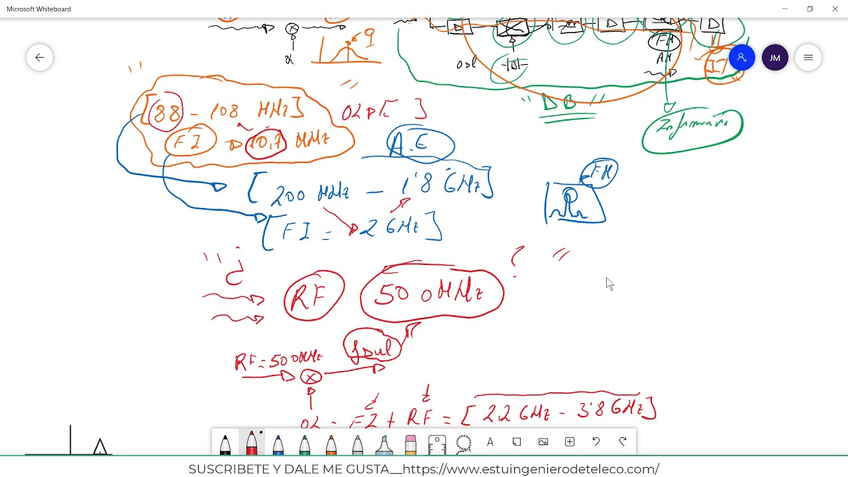 Microsoft Whiteboard
α
9
osl
FM
AM
JM
"DB"
Información
[88 - 108 MHz]
FI → 10.7 MHz
A.E
[200 MHz - 1'8 GHz]
[FI = 2 GHz]
FM
"¿
RF
500 MHz
? "
RF=500MHz
OL = FI + RF = [2.2 GHz - 3'8 GHz]
A
SUSCRIBETE Y DALE ME GUSTA__https://www.estuingenierodeteleco.com/